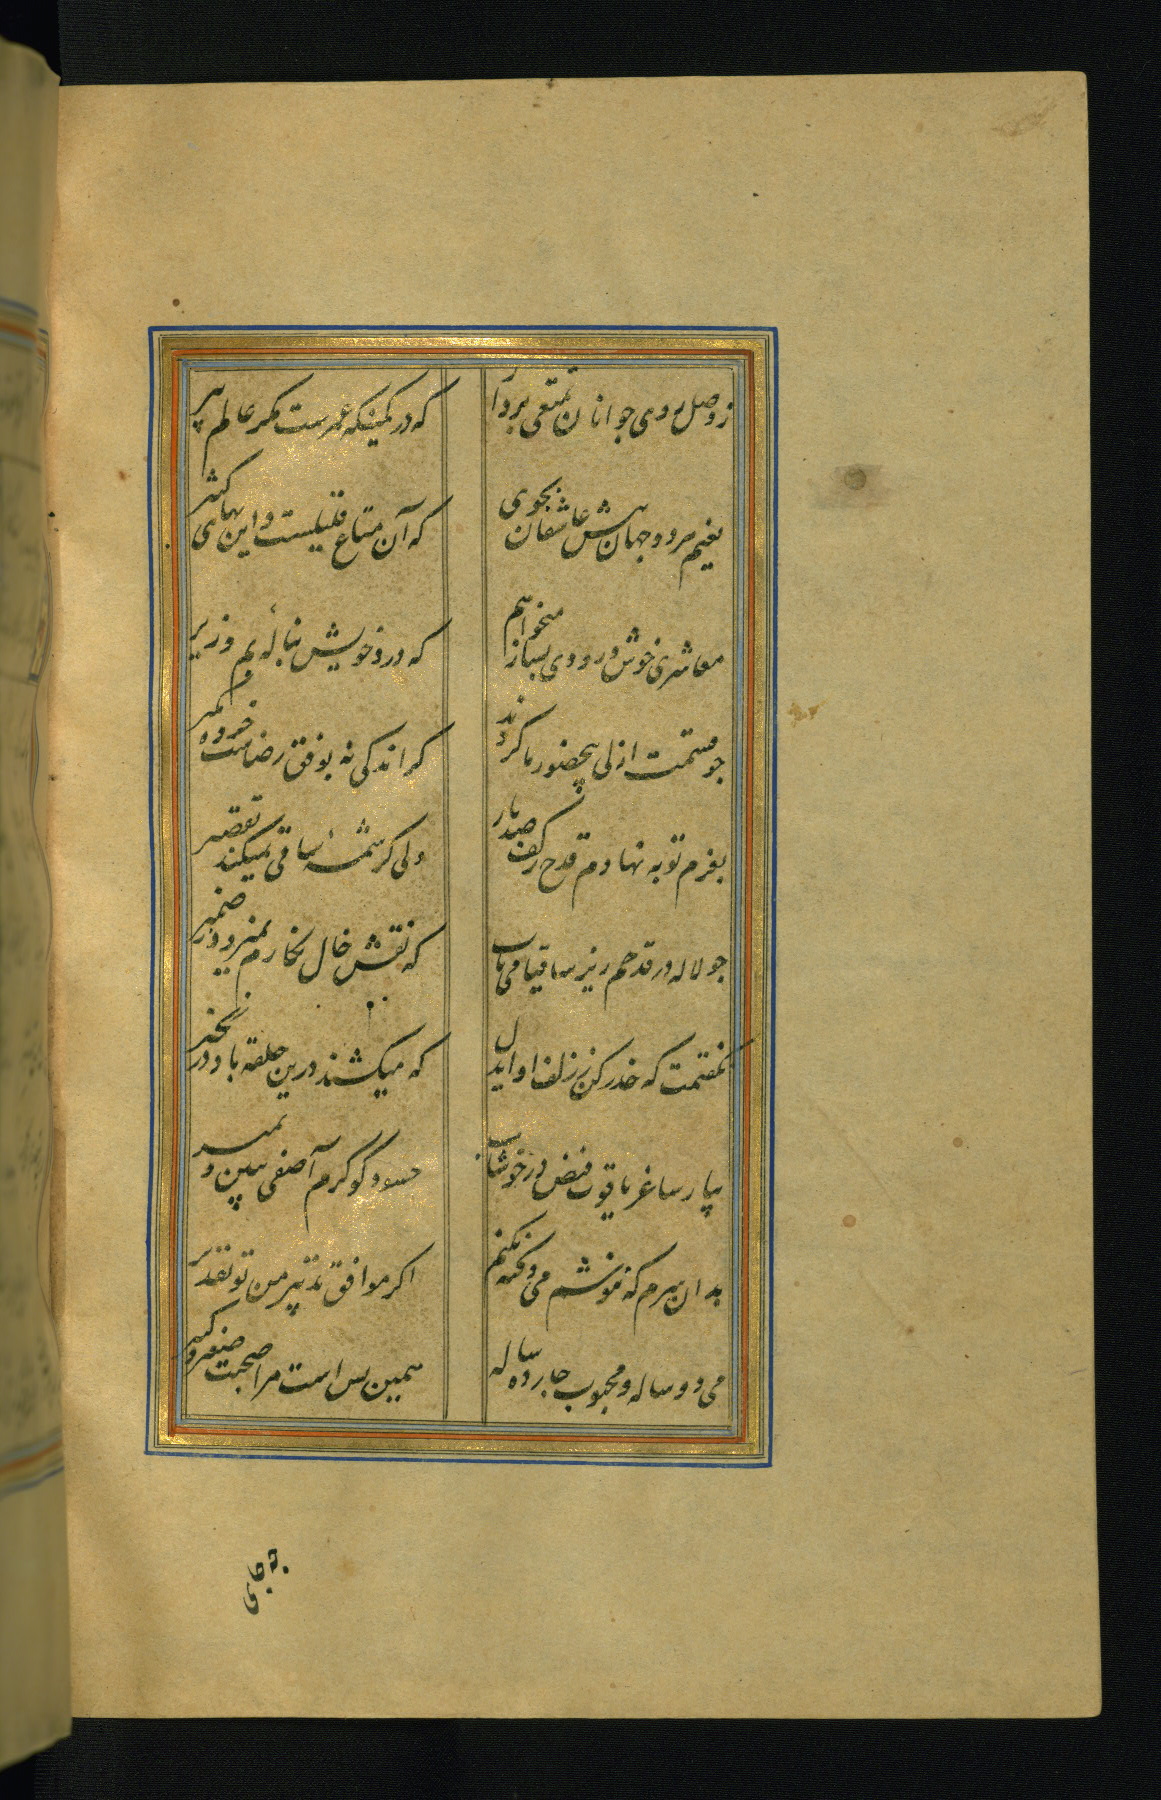 ز وصل روی جوانان تمتعی بردار
که در کمینکه عمرست مکر عالم پیر
نعیم هر دو جهان پیش عاشقان بجوی
که آن متاع قلیلست و این بهای کثیر
معاشری خوش و رودی بساز میخواهم
که درد خویش بنالم بنالهٔ بم و زیر
جو قسمت ازلی بیحضور ما کردند
کر اندکی نه بوفق رضاست خرده مکیر
بعزم توبه نهادم قدح ز کف صد بار
ولی کرشمهٔ ساقی نمیکند تقصیر
جو لاله در قدحم ریز ساقیا می ناب
که نقش خال نکارم نمیرود ز ضمیر
نکفتمت که حذر کن ز زلف او ایدل
که میکشند درین حلقه باد در زنجیر
بیار ساغر یاقوت فیض در خوشاب
حسود کو کرم آصفی ببین و بمیر
بدان سرم که ننوشم می و کنه نکنم
اکر موافق تدبیر من بود تقدیر
می دو ساله و محبوب چارده ساله
همین بس است مرا صحبت صغیر و کبیر
چه جای